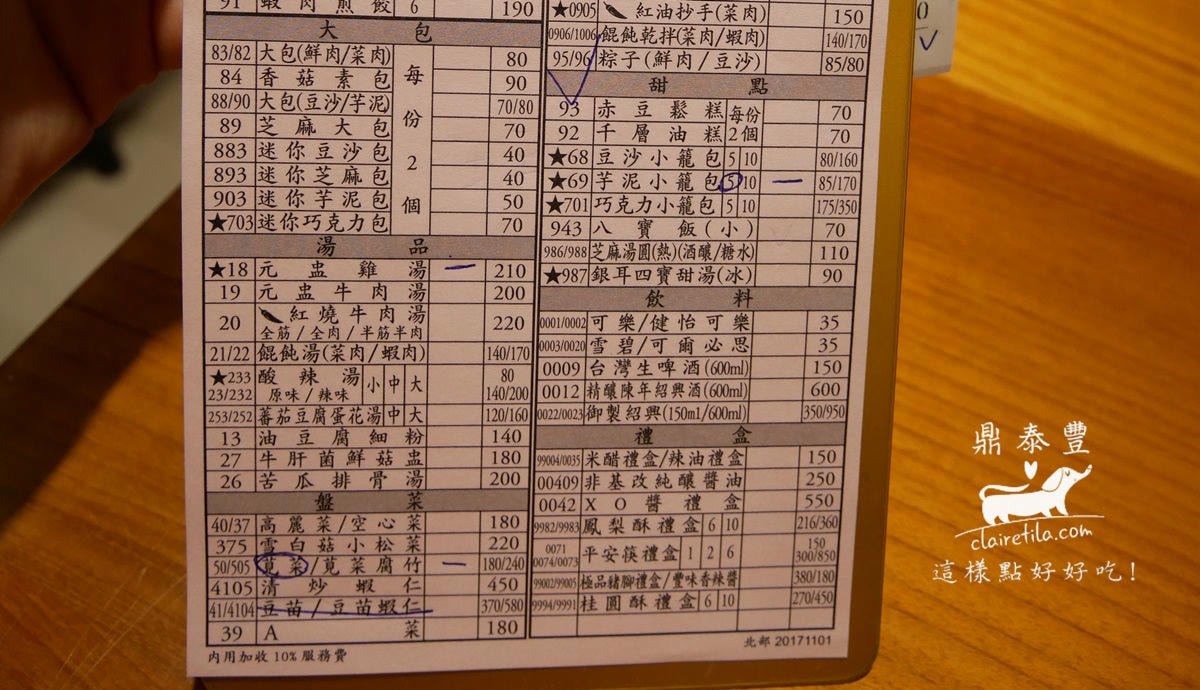 91 蝦肉煎餃 6 190
大包
83/82 大包(鮮肉/菜肉) 80
84 香菇素包 90
88/90 大包(豆沙/芋泥) 70/80
89 芝麻大包 70
883 迷你豆沙包 40
893 迷你芝麻包 40
903 迷你芋泥包 50
★703 迷你巧克力包 70
每份2個
湯品
★18 元盅雞湯 一 210
19 元盅牛肉湯 200
20 紅燒牛肉湯 220
全筋/全肉/半筋半肉
21/22 餛飩湯(菜肉/蝦肉) 140/170
★233 酸辣湯 小 中 大 80
23/232 原味/辣味 140/200
253/252 蕃茄豆腐蛋花湯 中 大 120/160
13 油豆腐細粉 140
27 牛肝菌鮮菇盅 180
26 苦瓜排骨湯 200
盤菜
40/37 高麗菜/空心菜 180
375 雪白菇小松菜 220
50/505 莧菜/莧菜腐竹 一 180/240
4105 清炒蝦仁 450
41/4104 豆苗/豆苗蝦仁 370/580
39 A菜 180
內用加收10%服務費
★0905 紅油抄手(菜肉) 150
0906/1006 餛飩乾拌(菜肉/蝦肉) 140/170
95/96 粽子(鮮肉/豆沙) 85/80
甜點
93 赤豆鬆糕 每份 70
92 千層油糕 2個 70
★68 豆沙小籠包 5 10 80/160
★69 芋泥小籠包 5 10 一 85/170
★701 巧克力小籠包 5 10 175/350
943 八寶飯(小) 70
986/988 芝麻湯圓(熱)(酒釀/糖水) 110
★987 銀耳四寶甜湯(冰) 90
飲料
0001/0002 可樂/健怡可樂 35
0003/0020 雪碧/可爾必思 35
0009 台灣生啤酒(600ml) 150
0012 精釀陳年紹興酒(600ml) 600
0022/0023 御製紹興(150ml/600ml) 350/950
禮盒
99004/0035 米醋禮盒/辣油禮盒 150
00409 非基改純釀醬油 250
0042 XO醬禮盒 550
9982/9983 鳳梨酥禮盒 6 10 216/360
0071 150
0074/0073 平安筷禮盒 1 2 6 300/850
99002/99005 極品豬腳禮盒/豐味香辣醬 380/180
9994/9991 桂圓酥禮盒 6 10 270/450
北部 20171101
鼎泰豐
clairetila.com
這樣點好好吃!